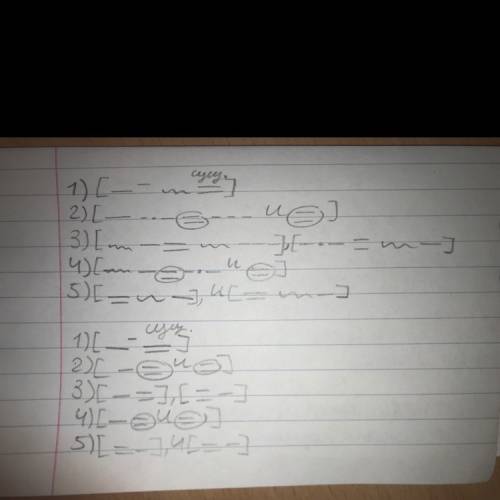 сущ.
1) [— – ~ =]
2) [— -·-· = --- и =]
3) [~ — = ~ —], [—·— = ~ —]
4) [~ — = —·— и =]
5) [= ~ —], и [= ~ —]
сущ.
1) [— – =]
2) [— = и =]
3) [— =], [= —]
4) [— = и =]
5) [= —], и [= —]